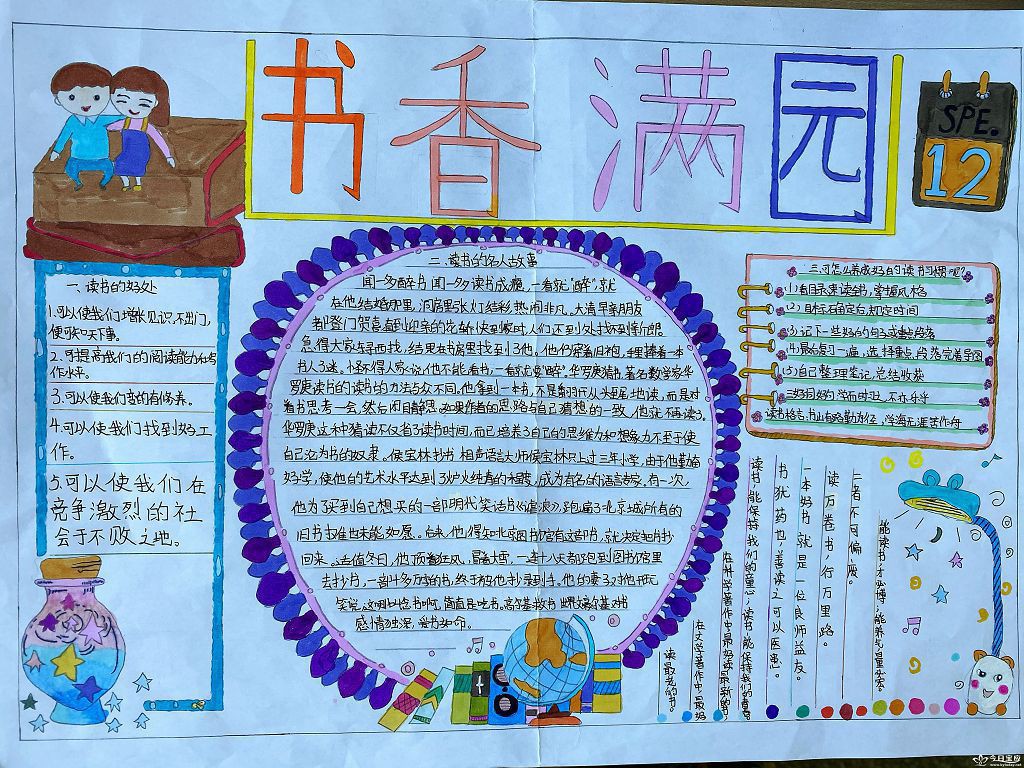 书香满园
SPE.
12
一.读书的好处
1.可以使我们增长见识,不出门,
便可知天下事。
2.可提高我们的阅读能力和写
作水平。
3.可以使我们变的有修养。
4.可以使我们找到好工
作。
5.可以使我们在
竞争激烈的社
会于不败之地。
二.读书的名人故事
闻一多醉书 闻一多读书成瘾,一看就"醉",就
在他结婚那里,洞房里张灯结彩,热闹非凡。大清早亲朋友
都登门贺喜,直到迎亲的花轿快到家时,人们还到处找不到新郎。
急得大家东寻西找,结果在书房里找到了他。他仍穿着旧袍,手里捧着一本
书人了迷。怪不得人家说他不能看书,一看就要"醉"。华罗庚猜书 著名数学家华
罗庚读书的读书的办法与众不同。他拿到一本书,不是翻开从头至尾地读,而是对
着书思考一会,然后闭目静思。如果作者的思路与自己猜想的一致,他就不再读了,
华罗庚这种猜读不仅省了读书时间,而已培养了自己的思维力和想象力不至于使
自己沦为书的奴隶。侯宝林书书 相声语言大师侯宝林只上过三年小学,由于他勤奋
好学,使他的艺术水平达到了炉火纯青的程度,成为有名的语言专家,有一次,
他为了买到自己想买的一部明代笑话书《谑浪》,跑遍了北京城所有的
旧书书摊也未能如愿。后来,他得知北京图书馆有这部书,就决定把书抄
回来。适值冬日,他顶着狂风,冒着大雪,一连十八天都跑到图书馆里
去抄书,一部十多万字的书,终于被他抄录到手。
感情独深,爱书如命。
三.可怎么养成好的读书习惯呢?
(1)看目录来读书,掌握风格
(2)目标在自定后规定时间
(3)记下一些好的句子或整段落
(4)最后复习一遍,选择重点段落完善导图
(5)自己整理笔记,总结收获
读书格言:书山有路勤为径,学海无涯苦作舟
能读书才必博;能养气量必宏。
二者不可偏废。
读万卷书,行万里路。
一本好书就是一位良师益友。
书犹药也,善读之可以医愚。
在科学著作中最好读最新的书
在文学著作中最好
读最老的书。